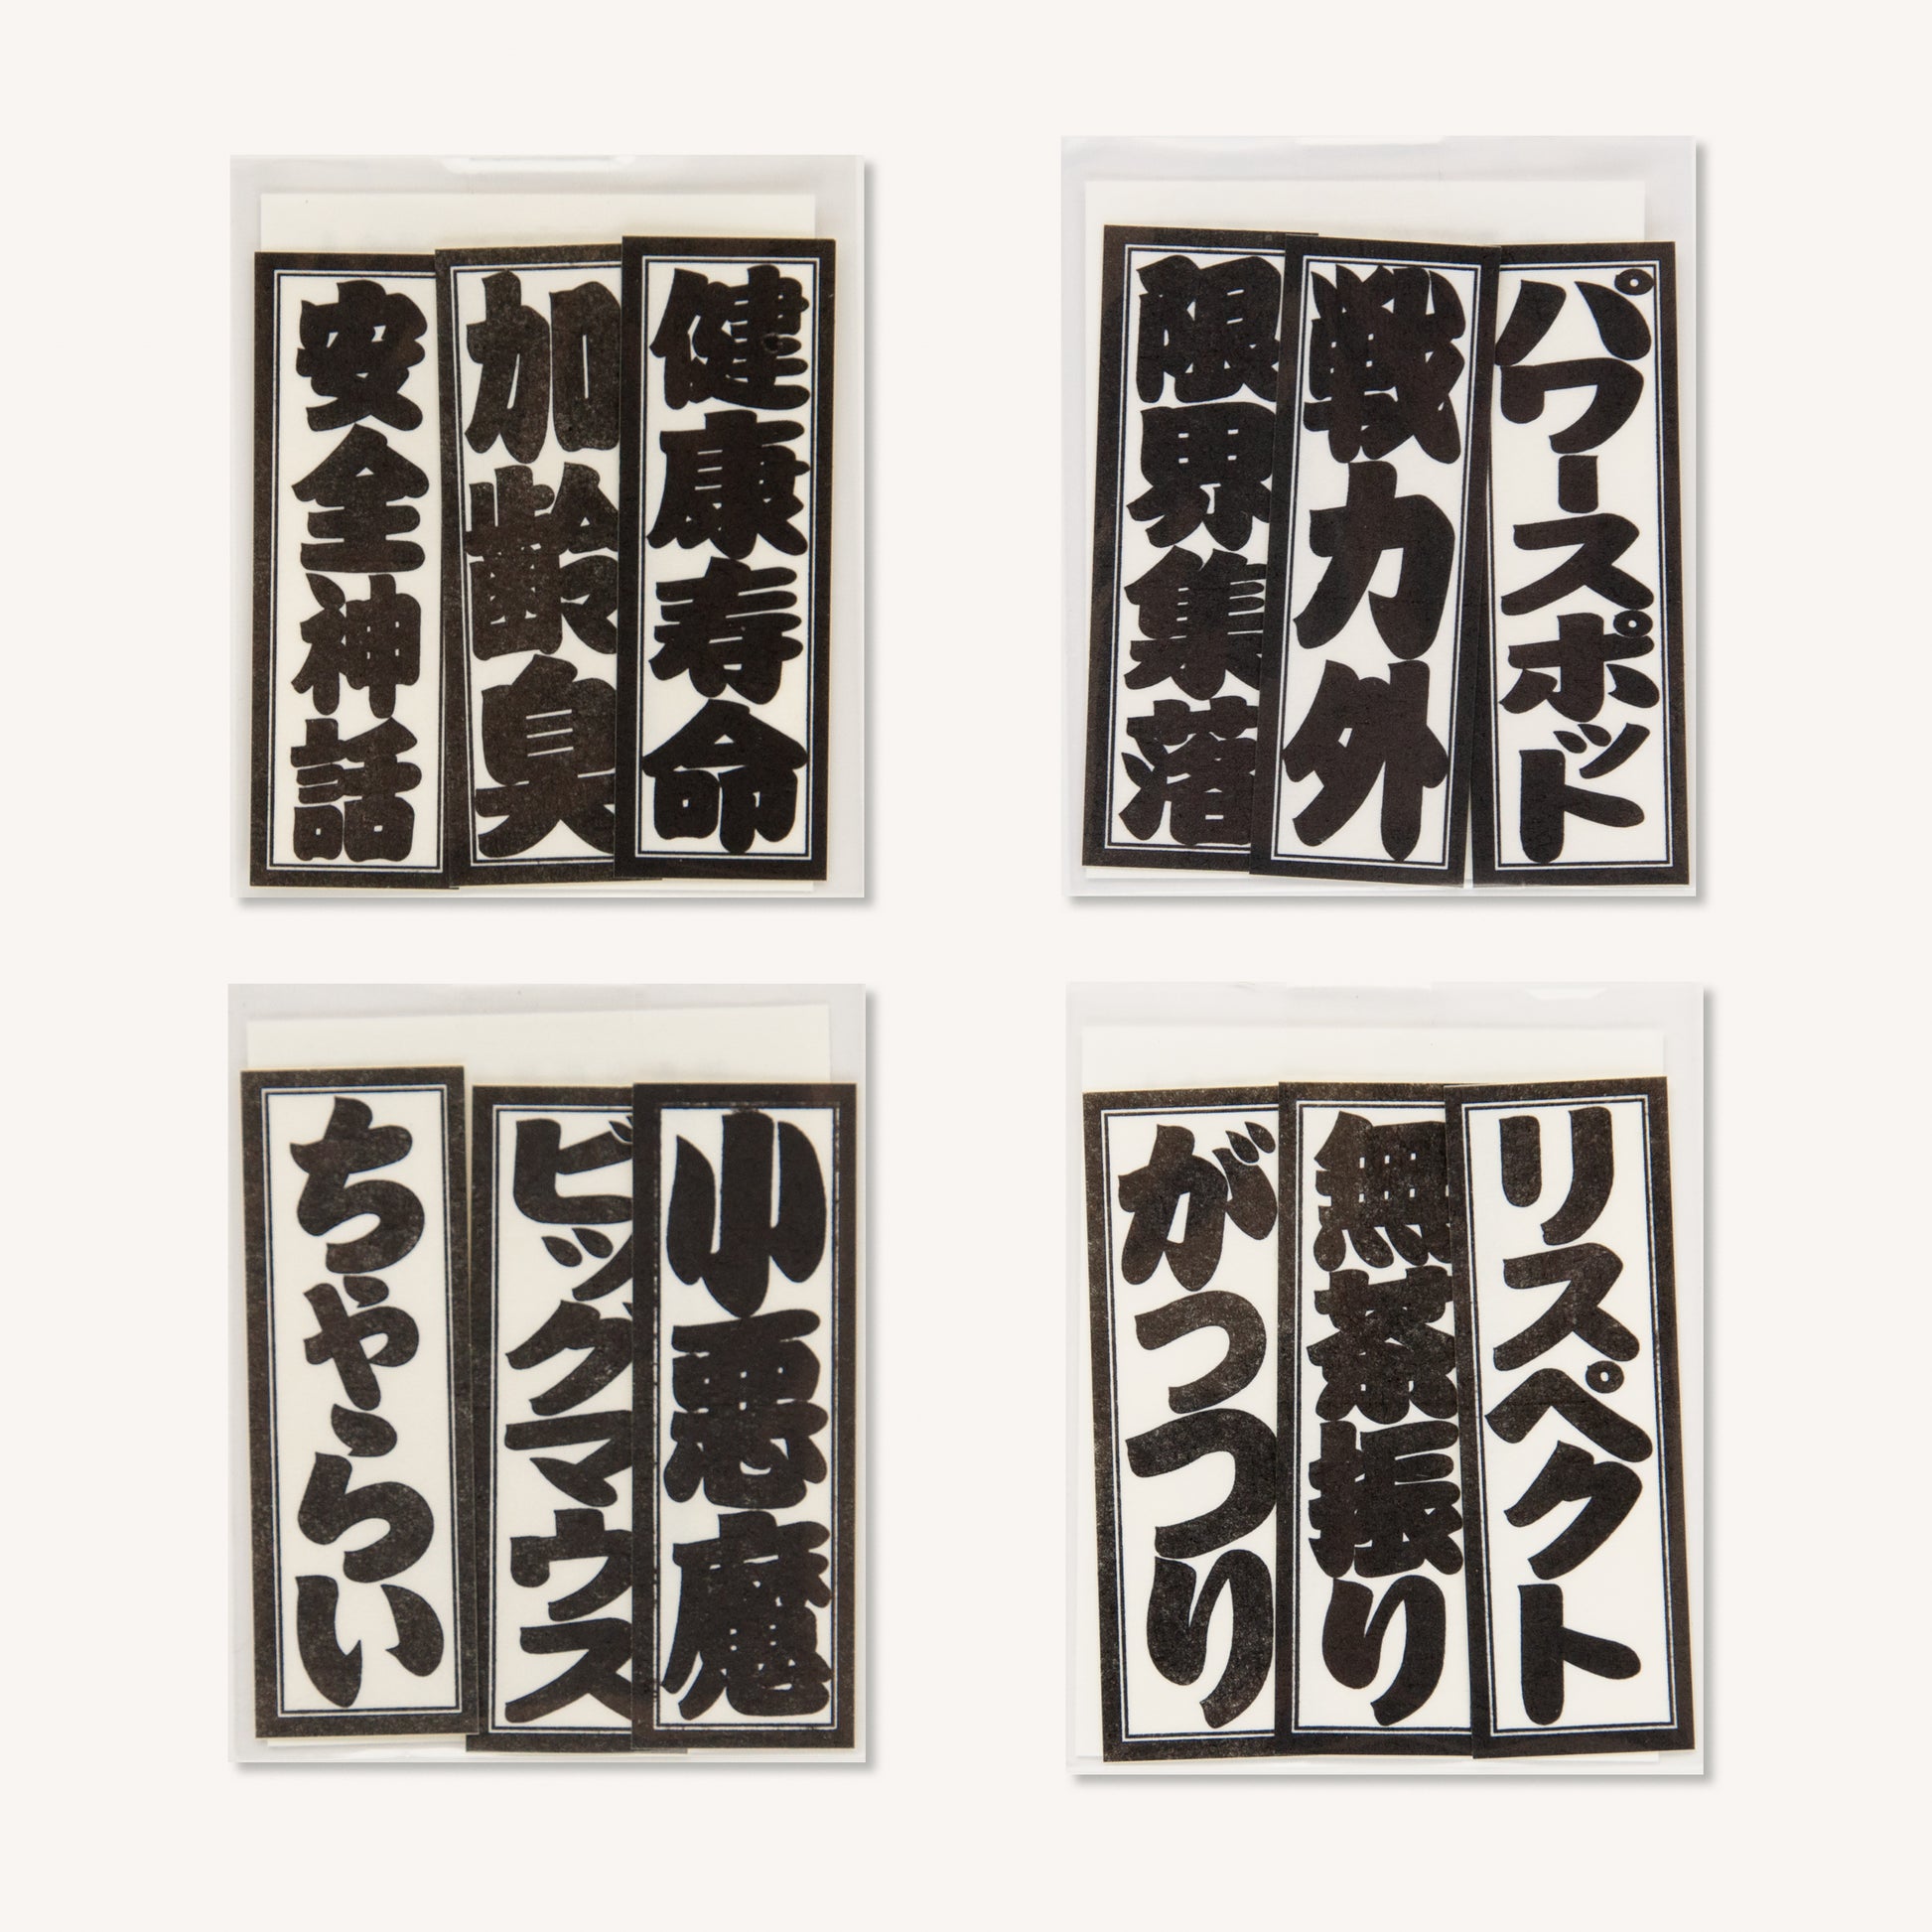 健康寿命
加齢臭
安全神話
パワースポット
戦力外
限界集落
小悪魔
ビッグマウス
ちゃらい
リスペクト
無茶振り
がっつり